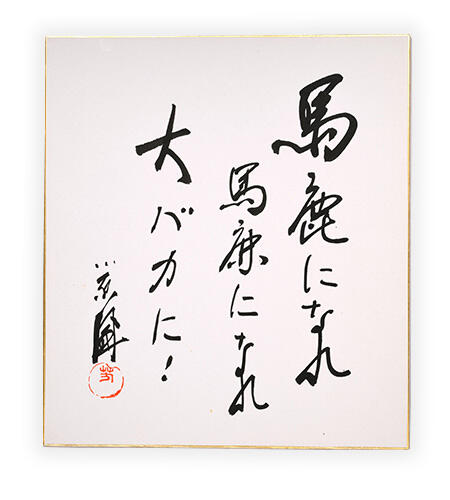 馬鹿になれ
馬鹿になれ
大バカに!